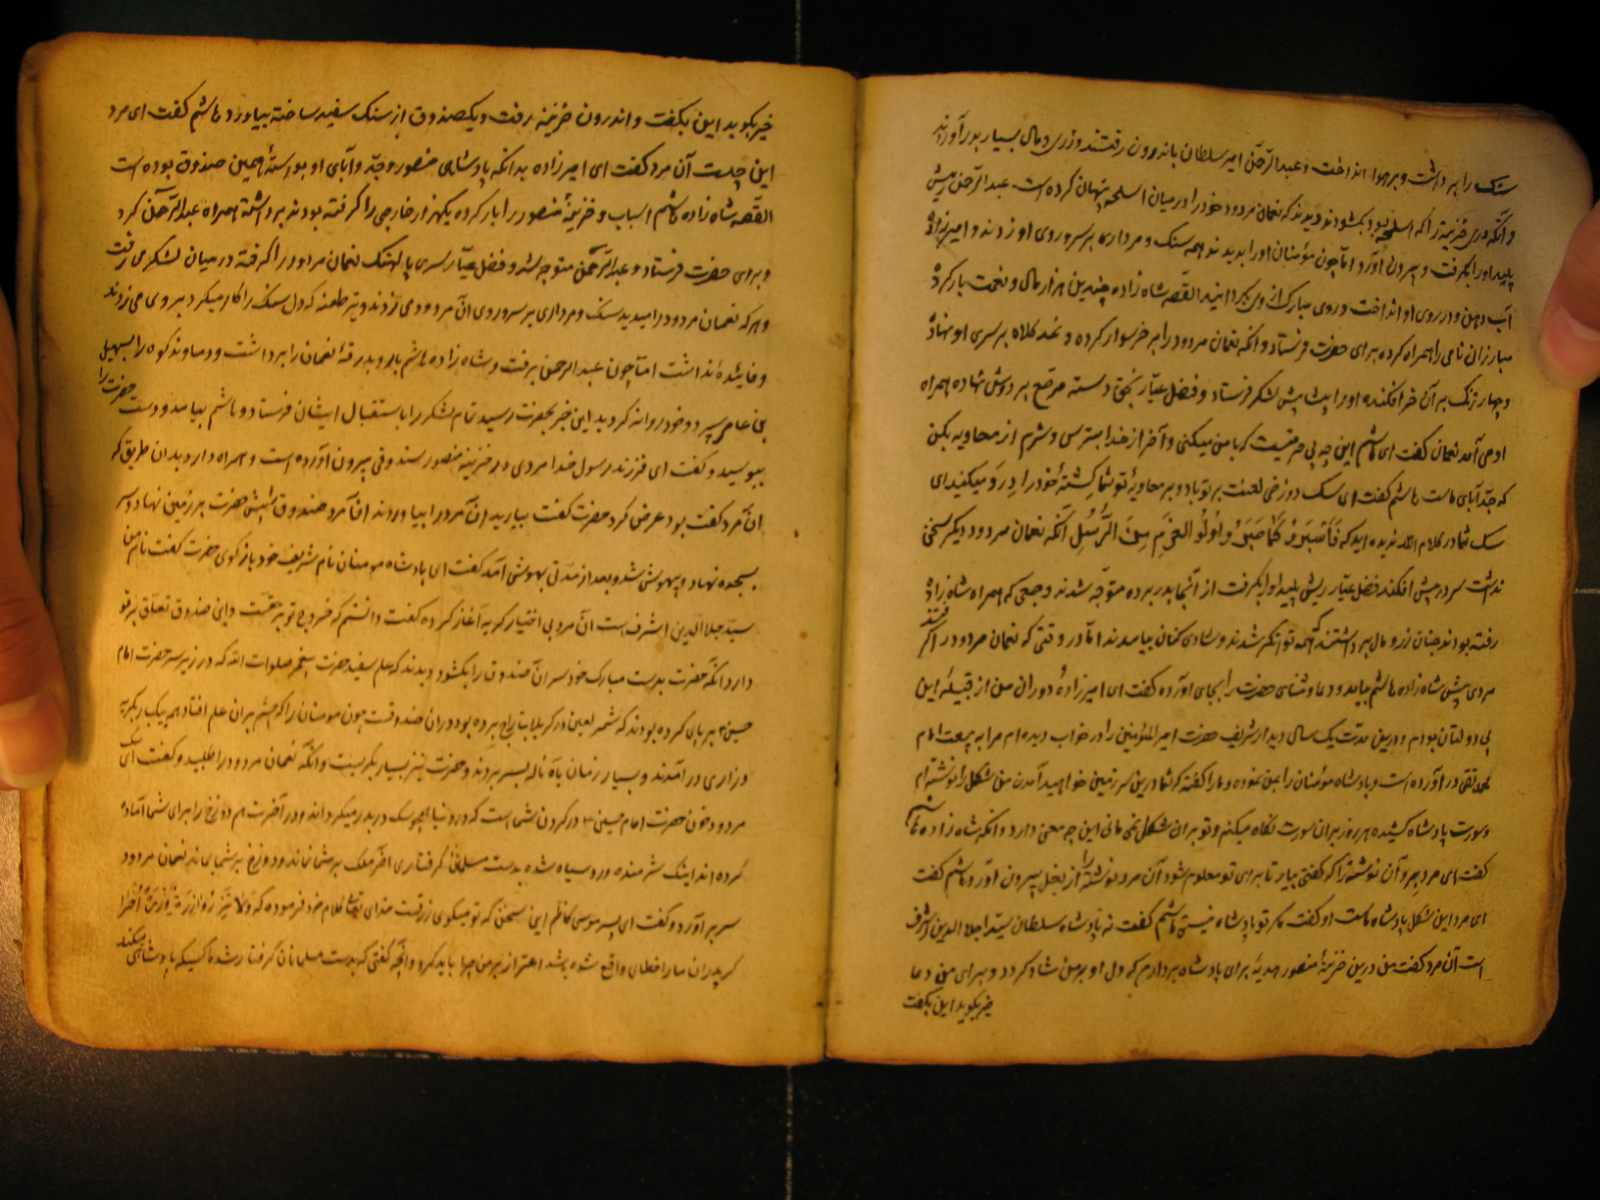 سنک را برداشت و بر هوا انداخت و عبدالرحمن امیر سلطان باندرون رفتند و زری و مال بسیار بدر آوردند
و انکه دری خزینه را که اسلحه بود بکشودند دیدند که نعمان مردود خود را در میان اسلحه پنهان کرده است عبدالرحمن ریش
پلید او را بکرفت و بیرون آورد اما چون مؤمنان او را بدیدند همه سنک و مرداری بر سر و روی او زدند و امیرزاده
آب دهن در روی او انداخت و روی مبارک از وی بکردانید القصه شاه زاده چندین هزار مال و نعمت بار کرد
مبارزان نامی را همراه کرده برای حضرت فرستاد و انکه نعمان مردود را بر خر سوار کرده و نمد کلاه بر سری او نهاد
و چهار زنک به آن خر افکنده او را پیشاپیش لشکر فرستاد و فضل عیار دسته مرصع بر دوش نهاده همراه
او می آمد نعمان کفت ای هاشم این چه بی حرمتیست که با من میکنی و آخر از خدا بترسی و شرم از معاویه بکن
که جد آبای ماست هاشم کفت ای سک دوزخی لعنت بر تو باد و بر معاویه تو شما کشته خود را درو میکنید ای
سک شما در کلام الله ندیده اید که فَاصْبِرْ كَمَا صَبَرَ اُولُوا العَزْمِ مِنَ الرُّسُلِ آنکه نعمان مردود دیکر سخن
نداشت سر در پیش افکند فضل عیار ریش پلید او را بکرفت از آنجا بدر برده متوجه شدند و جمعی که همراه شاه زاده
رفته بودند چنان زر و مال برداشتند که همه توانکر شدند و شادی کنان بیامدند اما در وقتی که نعمان مردود را کرفتند
مردی پیش شاه زاده هاشم بیامد و دعا و ثنای حضرت را بجای آورده کفت ای امیرزادهٔ دوران من از قبیلهٔ این
بی دولتان بودم و درین مدت یک سال دیدار شریف حضرت امیرالمؤمنین را در خواب دیده ام مرا به بیعت امام
محمد تقی در آورده است و پادشاه مؤمنان را بمن نموده و مرا کفته که شما درین سرزمین خواهید آمدن من شکل را نوشته ام
و صورت پادشاه کشیده هر روز بران صورت نکاه میکنم و تو بران شکل نمی مانی این چه معنی دارد و انکه شاه زاده هاشم
کفت ای مرد برو آن نوشته را که کفتی بیار تا برای تو معلوم شود آن مرد نوشته را از بغل بیرون آورد هاشم کفت
ای مرد این شکل پادشاه ماست او کفت مکر تو پادشاه نیستی هاشم کفت نه پادشاه سلطان سید جلال الدین اشرف
است آن مرد کفت من درین خزینهٔ منصور هدیهٔ برای پادشاه بردارم که دل او بر من شاد کردد و برای من دعا
خیر بکوید این بکفت
خیر بکوید این بکفت و اندرون خزینه رفت و یک صندوق از سنک سفید ساخته بیاورد هاشم کفت ای مرد
این چیست آن مرد کفت ای امیرزاده بدانکه پادشاهی منصور و جد و آبای او بواسطهٔ همین صندوق بوده است
القصه شاه زاده هاشم اسباب و خزینهٔ منصور را بار کرده یکهزار خارجی را کرفته بودند برداشته همراه عبدالرحمن کرد
و بروی حضرت فرستاد و عبدالرحمن متوجه شد و فضل عیار سری پالهنک نعمان مردود را کرفته در میان لشکر می رفت
و هر که نعمان مردود را میدید سنک و مرداری بر سر و روی آن مردود می زدند و تیر طعنه که دل سنک را کار میکرد بر وی می زدند
و فایدهٔ نداشت اما چون عبدالرحمن برفت و شاه زاده هاشم بار و بدرقهٔ نعمان را برداشت و دماوند کوه را بسهیل
بن عامر سپرد و خود روانه کردید این خبر بحضرت رسید تمام لشکر را باستقبال ایشان فرستاد و هاشم بیامد و دست حضرت را
ببوسید و کفت ای فرزند رسول خدا مردی در خزینه منصور صندوقی بیرون آورده است و همراه دارد بدان طریق که
آن مرد کفت بود عرض کرد حضرت کفت بیارید آن مرد را بیاوردند آن مرد صندوق پیش حضرت بر زمین نهاد و سر
بسجده نهاد و بیهوش شد و بعد از مدتی بهوشی آمد کفت ای پادشاه مومنان نام شریف خود بازکوی حضرت کفت نام من
سید جلال الدین اشرف است آن مرد بی اختیار کریه آغاز کرده کفت دانستم که خروج تو بر حقست و این صندوق تعلق بر تو
دارد انکه حضرت بدست مبارک خود سر آن صندوق را بکشود دیدند که علم سفید حضرت پیغمبر صلوات الله که در زیر سر حضرت امام
حسین بر پای کرده بودند که شمر لعین در کربلا بتاراج برده بود در آن صندوقست چون مومنان را که چشم بران علم افتاد همه بیکبار بکریه
و زاری در آمدند و بسیار زمان با آه ناله بسر بردند و حضرت نیز بسیار بکریست و انکه نعمان مردود را طلبید و کفت ای سک
مردود خون حضرت امام حسین در کردن شما است که در دنیا همچو سک در بدر میکرداند و در آخرت هم دوزخ را برای شما آماده
کرده اند اینک شرمنده و رو سیاه شده بدست مسلمانان کرفتاری آخر ملک بر شما نماند و دوزخ بر شما ماند نعمان مردود
سر بر آورد و کفت ای پسر موسی کاظم این سخن که تو میکوی زرقست خدای تعالی در کلام خود فرموده که وَلَا تَزِرُ وَازِرَةٌ وِزْرَ اُخْرٰی
کر پدران ما را خطای واقع شوه باشد اعتراز بر من چرا باید کرد و آنچه کفتی که بدست مسلمانان کرفتار شده کسیکه پادشاهی میکند